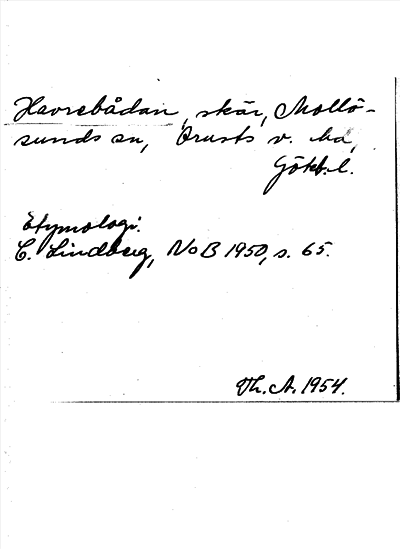 Havrebådan, skär, Mollö-
sunds sn, Orusts v. hd,
Göteb. l.
Etymologi.
C. Lindberg, NoB 1950, s. 65.
Th. A. 1954.